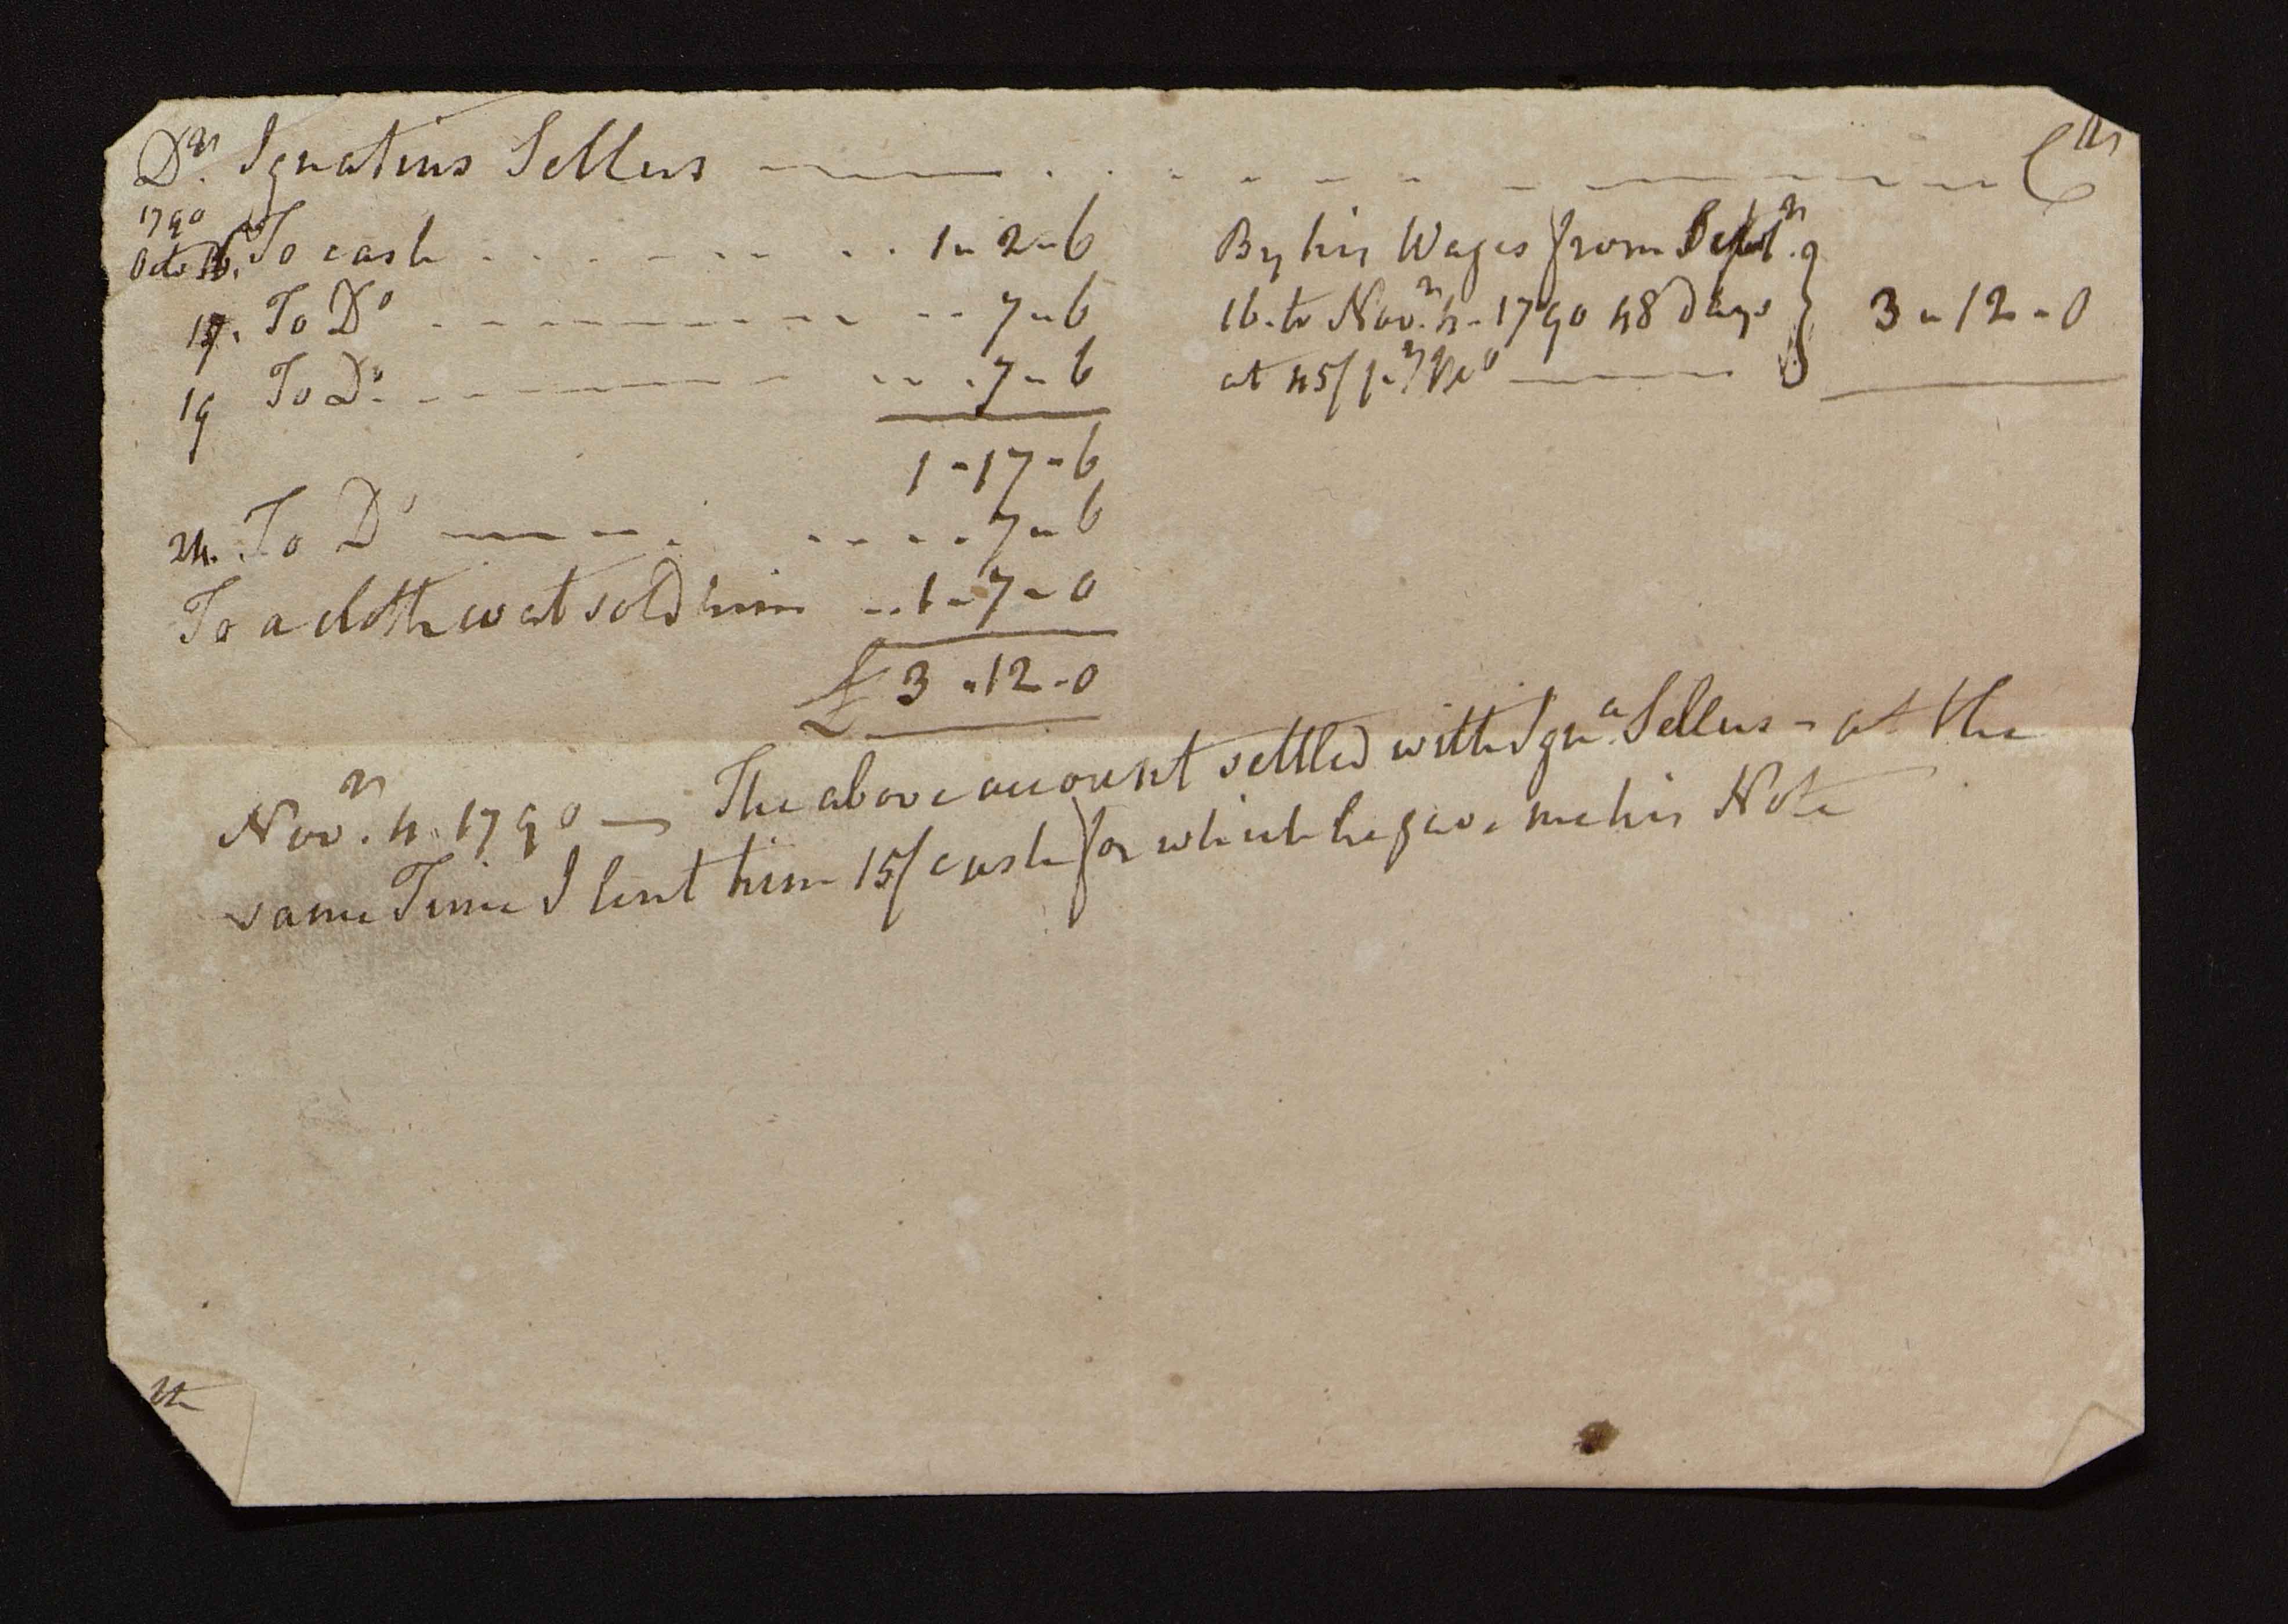 Dr. Ignatius Sellers Cr
1790
Octo 16. To cash 1-2-6
17. To Do 7-6
19 To Do 7-6
1-17-6
24. To Do 7-6
To a cloth coat sold him 1-7-0
£ 3-12-0
By his Wages from Septr.
16. to Novr. 4-1790 48 Days 3-12-0
at 45/ pr Mo
Novr. 4. 1790 — The above account settled with Igna. Sellers - at the
same Time I lent him 15/ cash for which he gave me his Note